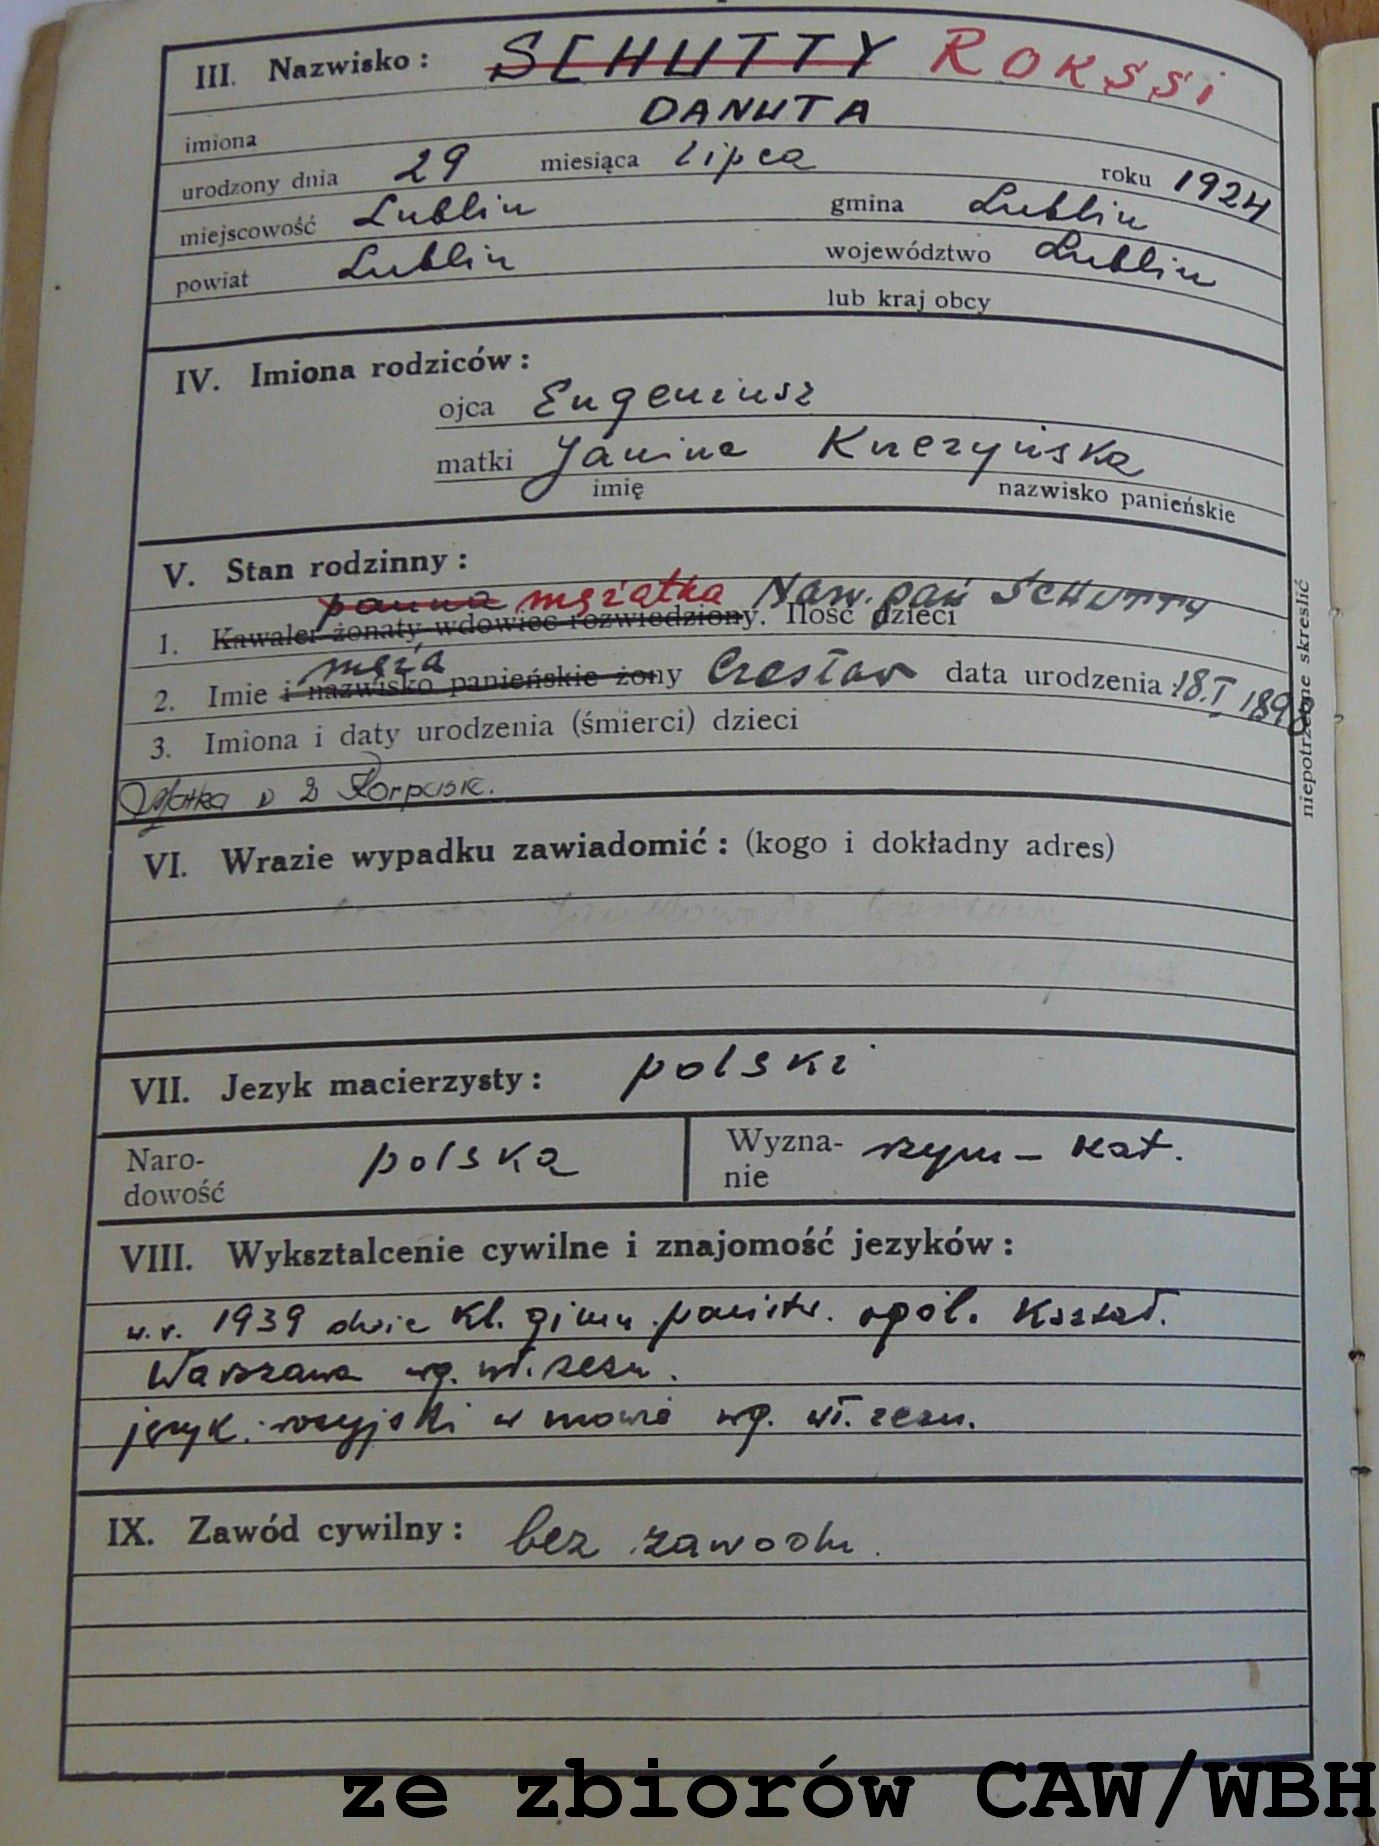 III. Nazwisko: SCHUTTY ROKSSi
imiona DANUTA
urodzony dnia 29 miesiąca lipca roku 1924
miejscowość Lublin gmina Lublin
powiat Lublin województwo Lublin
lub kraj obcy
IV. Imiona rodziców:
ojca Eugeniusz
matki Janina Kuczyńska
imię nazwisko panieńskie
V. Stan rodzinny:
panna mężatka Naw. pań SCHUTTY
1. Kawaler żonaty wdowiec rozwiedziony. Ilość dzieci
męża
2. Imie i nazwisko panieńskie żony Czesław data urodzenia 18.I.
3. Imiona i daty urodzenia (śmierci) dzieci
Matka w 2 Korpusie.
niepotrzebne skreślić
VI. Wrazie wypadku zawiadomić: (kogo i dokładny adres)
VII. Jezyk macierzysty: polski
Naro- polska Wyzna- rzym-kat.
dowość nie
VIII. Wyksztalcenie cywilne i znajomość jezyków:
w.r. 1939 dwie kl. gimn. państw. ogól. Kształ.
Warszawa wg. wł. zezn.
język. rosyjski w mowie wg. wł. zezn.
IX. Zawód cywilny: bez zawodu.
ze zbiorów CAW/WBH